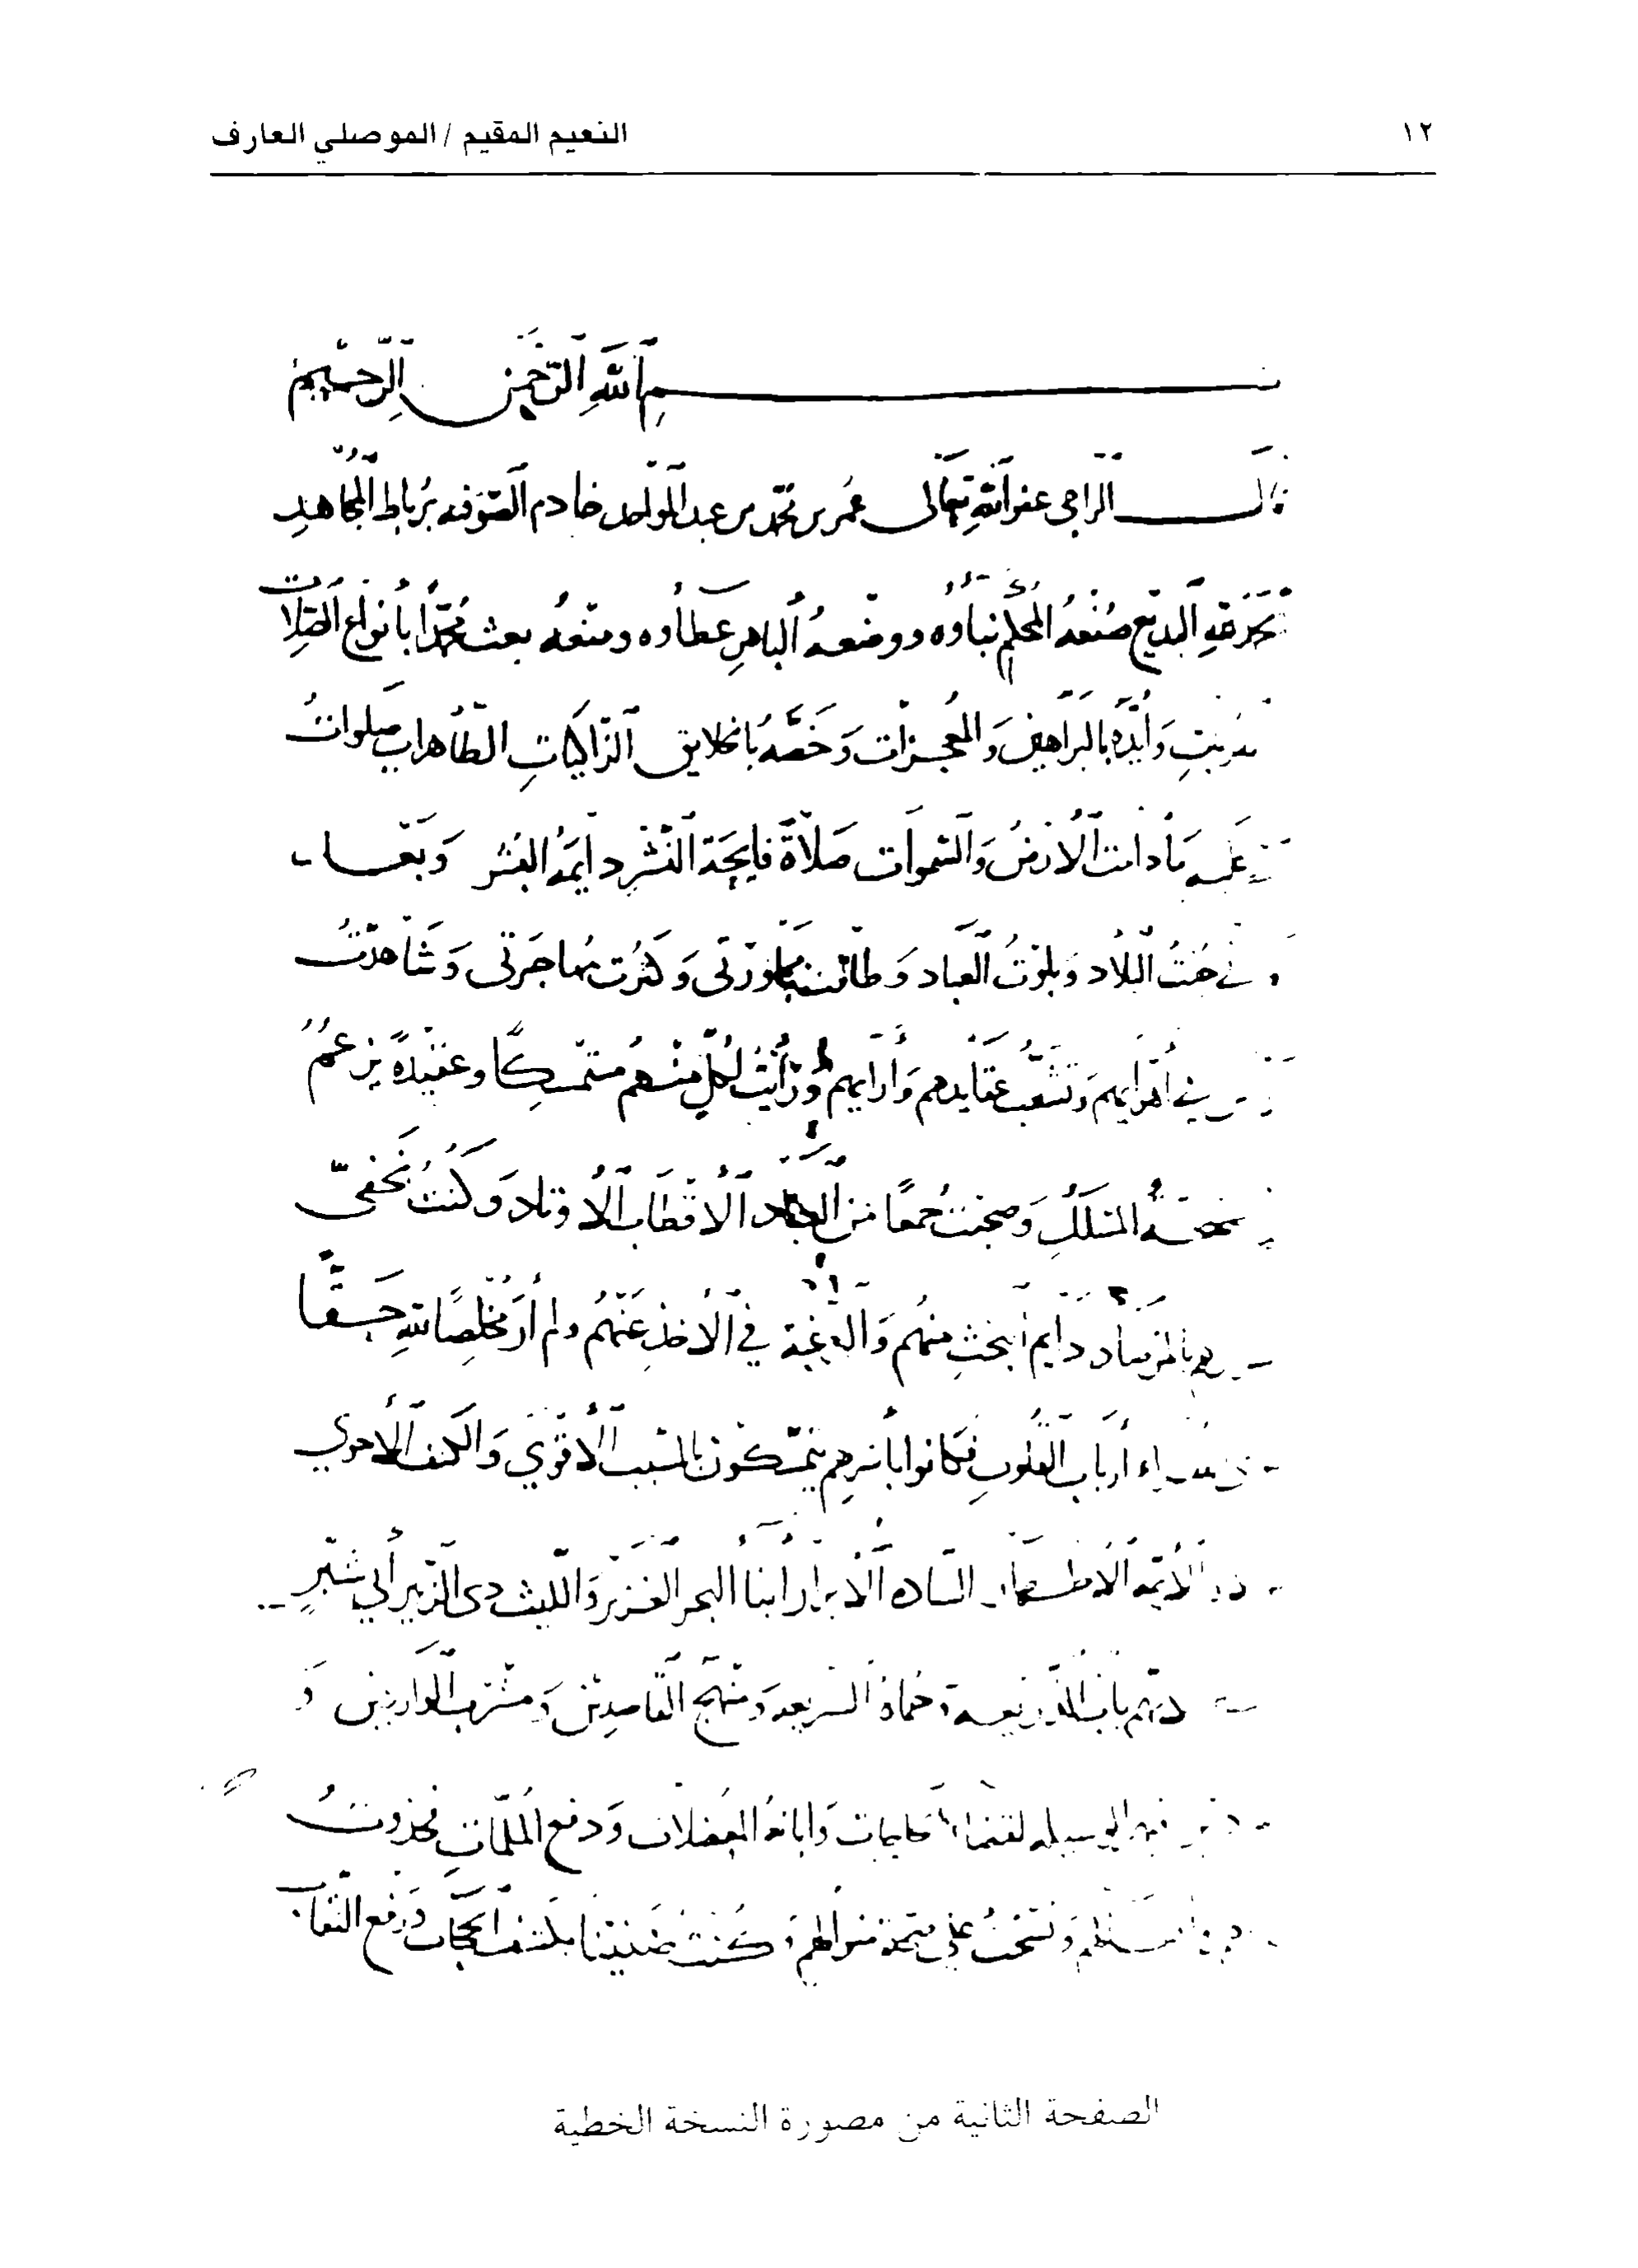 ١٢
النعيم المقيم / الموصلي العارف
بسم الله الرحمن الرحيم
قال الراجي عفو الله تعالى عمر بن محمد بن عبد الواحد خادم الصوفيه برباط المجاهد
البديع صنعه المحكم بناوه ووضعه الباهر عطاوه ومنعه بعث محمدا بأنواع الصلات
وأيده بالبراهين والمعجزات وخصه بالخلايق الزاكيات الطاهرات صلوات
عليه ما دامت الأرض والسموات صلاة فايحة النشر دايمه البشر وبعد
جبت البلاد وبلوت العباد وطالت مجاورتي وكثرت مهاجرتي وشاهدت
في أهوايهم وتشعب عقايدهم وأرايهم ورأيت لكل منهم متمسكا وعقيدة يزعم
المسلك وصحبت جمعا من العباد الأقطاب الأوتاد وكنت بخفي
دايم البحث منهم والرغبة في الأخذ عنهم ولم أر مخلصا لله حقا
أرباب القلوب فكانوا بأسرهم يتمسكون بالسبب الأقوى والكنف الأحوى
الأئمه الأطهار الساده الأبرار أبنا البحر الغزير والليث ذي الزبير أبي شبر
باب الذريعة وحماة الشريعه ومنهج القاصدين ومشرب الواردين و
وابانه المعضلات ودفع الملمات فحذوت
ونسجت على منوالهم وكنت ضنينا بكشف الحجاب ورفع النقاب
الصفحة الثانية من مصورة النسخة الخطية